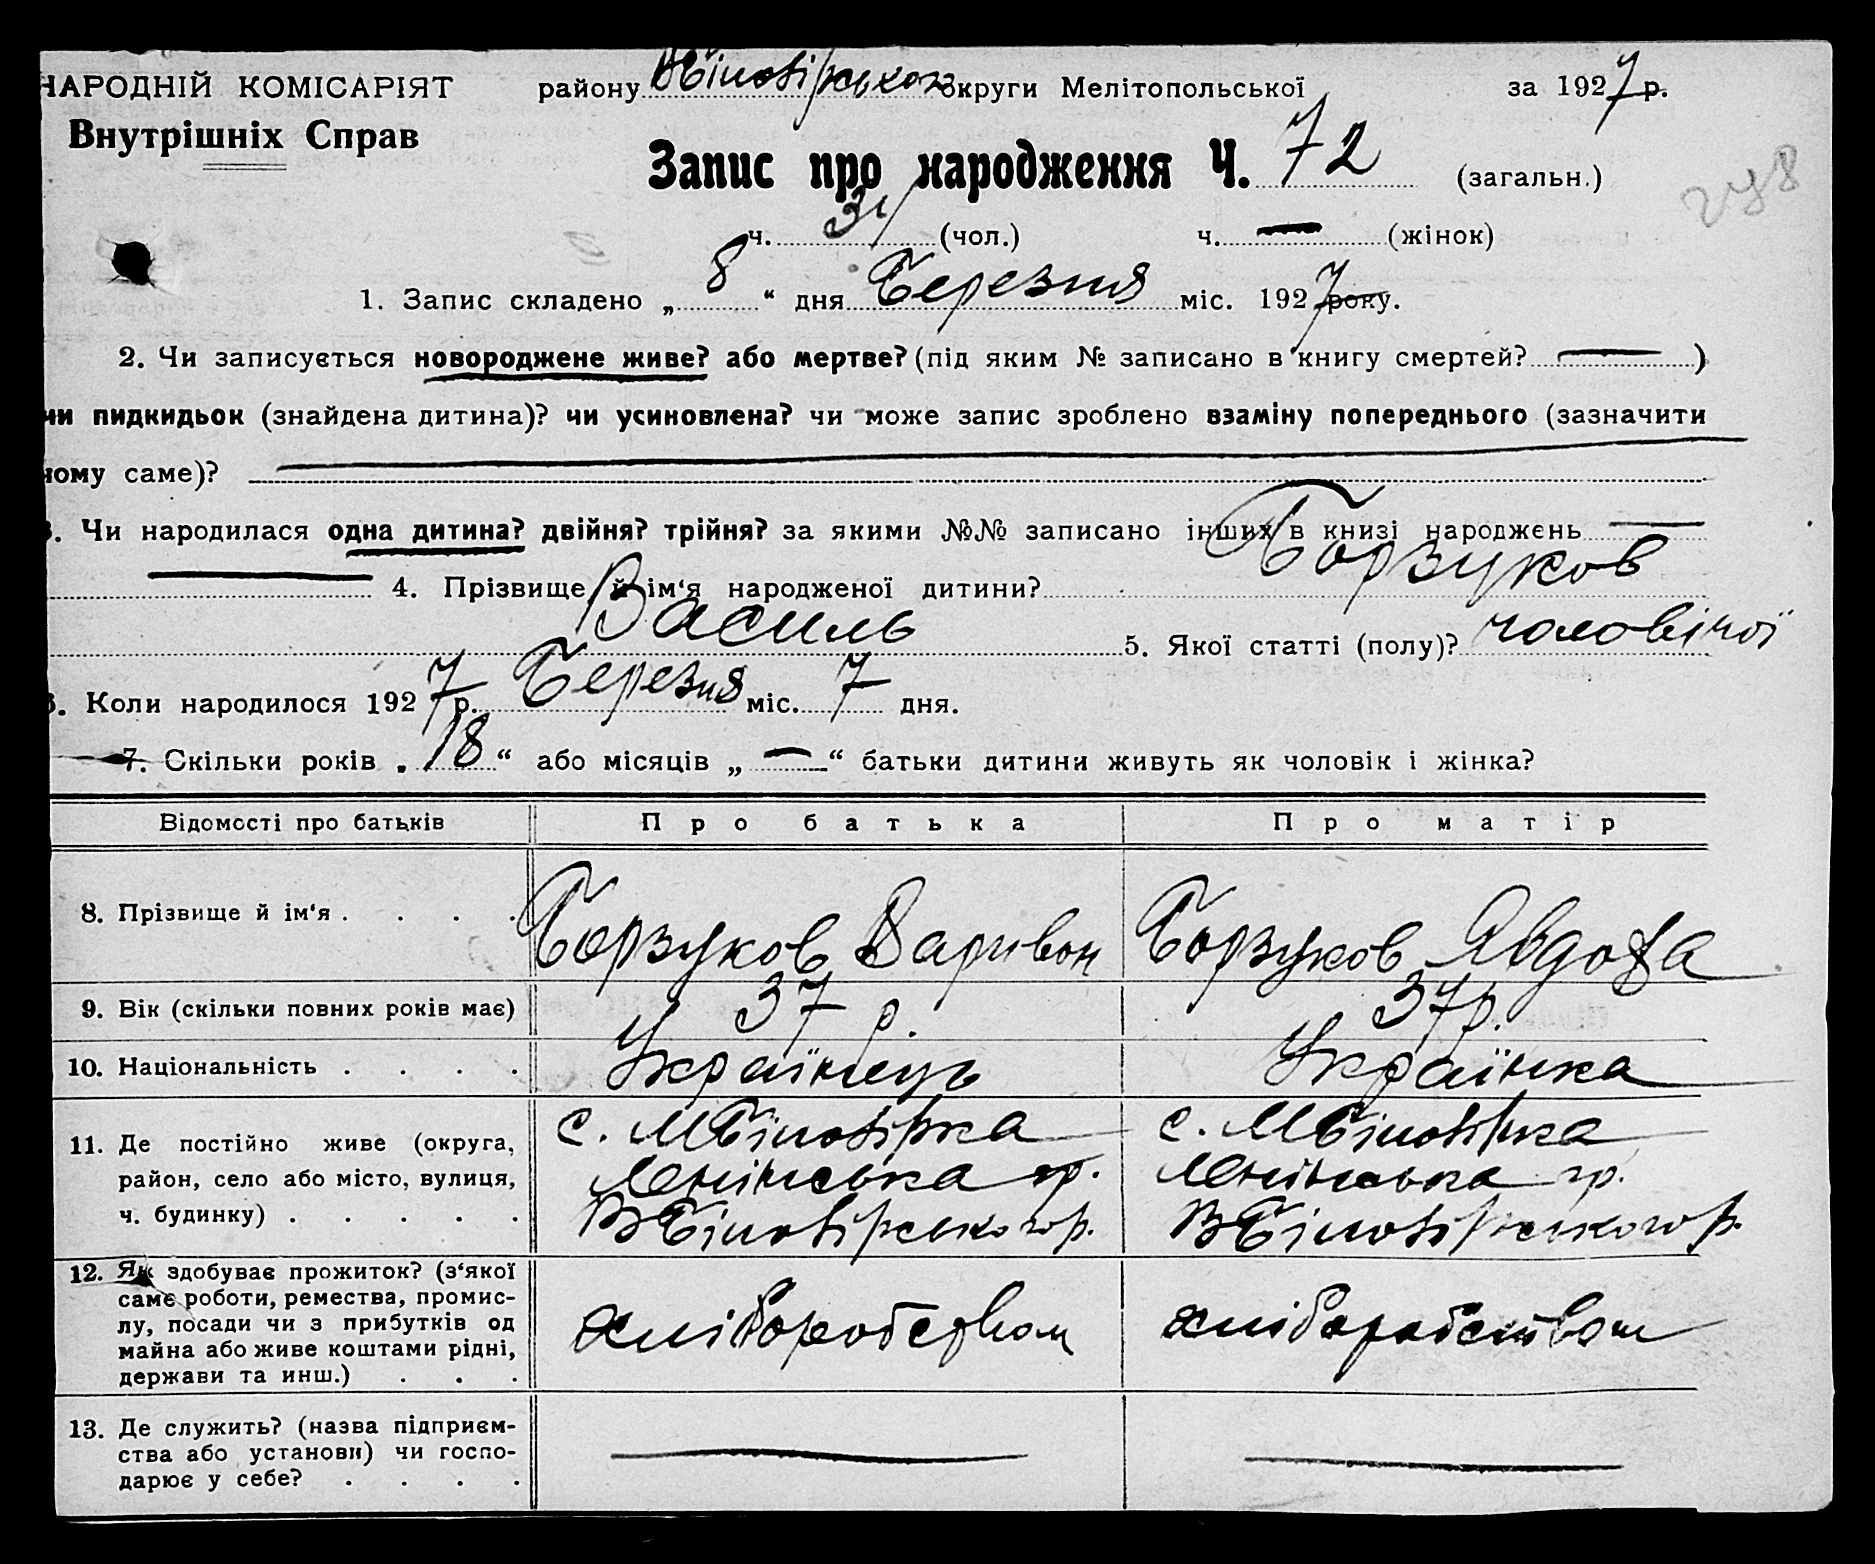 НАРОДНІЙ КОМІСАРІЯТ району ВБілозірського округи Мелітопольської за 1927 р.
Внутрішніх Справ
Запис про народження Ч. 72 (загальн.)
ч. 31 (чол.) ч. — (жінок)
1. Запис складено „ 8 “ дня Березня міс. 1927 року.
2. Чи записується новороджене живе? або мертве? (під яким № записано в книгу смертей? — )
чи пидкидьок (знайдена дитина)? чи усиновлена? чи може запис зроблено взаміну попереднього (зазначити
чому саме)? —
3. Чи народилася одна дитина? двійня? трійня? за якими №№ записано інших в книзі народжень —
— 4. Прізвище й ім‘я народженої дитини? Борзуков
Василь 5. Якої статті (полу)? чоловічої
6. Коли народилося 1927 р. Березня міс. 7 дня.
7. Скільки років „ 18 “ або місяців „ — “ батьки дитини живуть як чоловік і жінка?
Відомості про батьків Про батька Про матір
8. Прізвище й ім‘я . . . . Борзуков Варивон Борзуков Явдоха
9. Вік (скільки повних років має) 37 р. 37 р.
10. Національність . . . . Українець Українка
11. Де постійно живе (округа, с. МБілозірка с. МБілозірка
район, село або місто, вулиця, Ленінська гр. Ленінська гр.
ч. будинку) . . . . . ВБілозірського р. ВБілозірського р.
12. Як здобуває прожиток? (з‘якої
саме роботи, ремества, промис-
лу, посади чи з прибутків од хліборобством хліборобством
майна або живе коштами рідні,
держави та инш.) . . .
13. Де служить? (назва підприєм-
ства або установи) чи госпо- — —
дарює у себе? . . . .